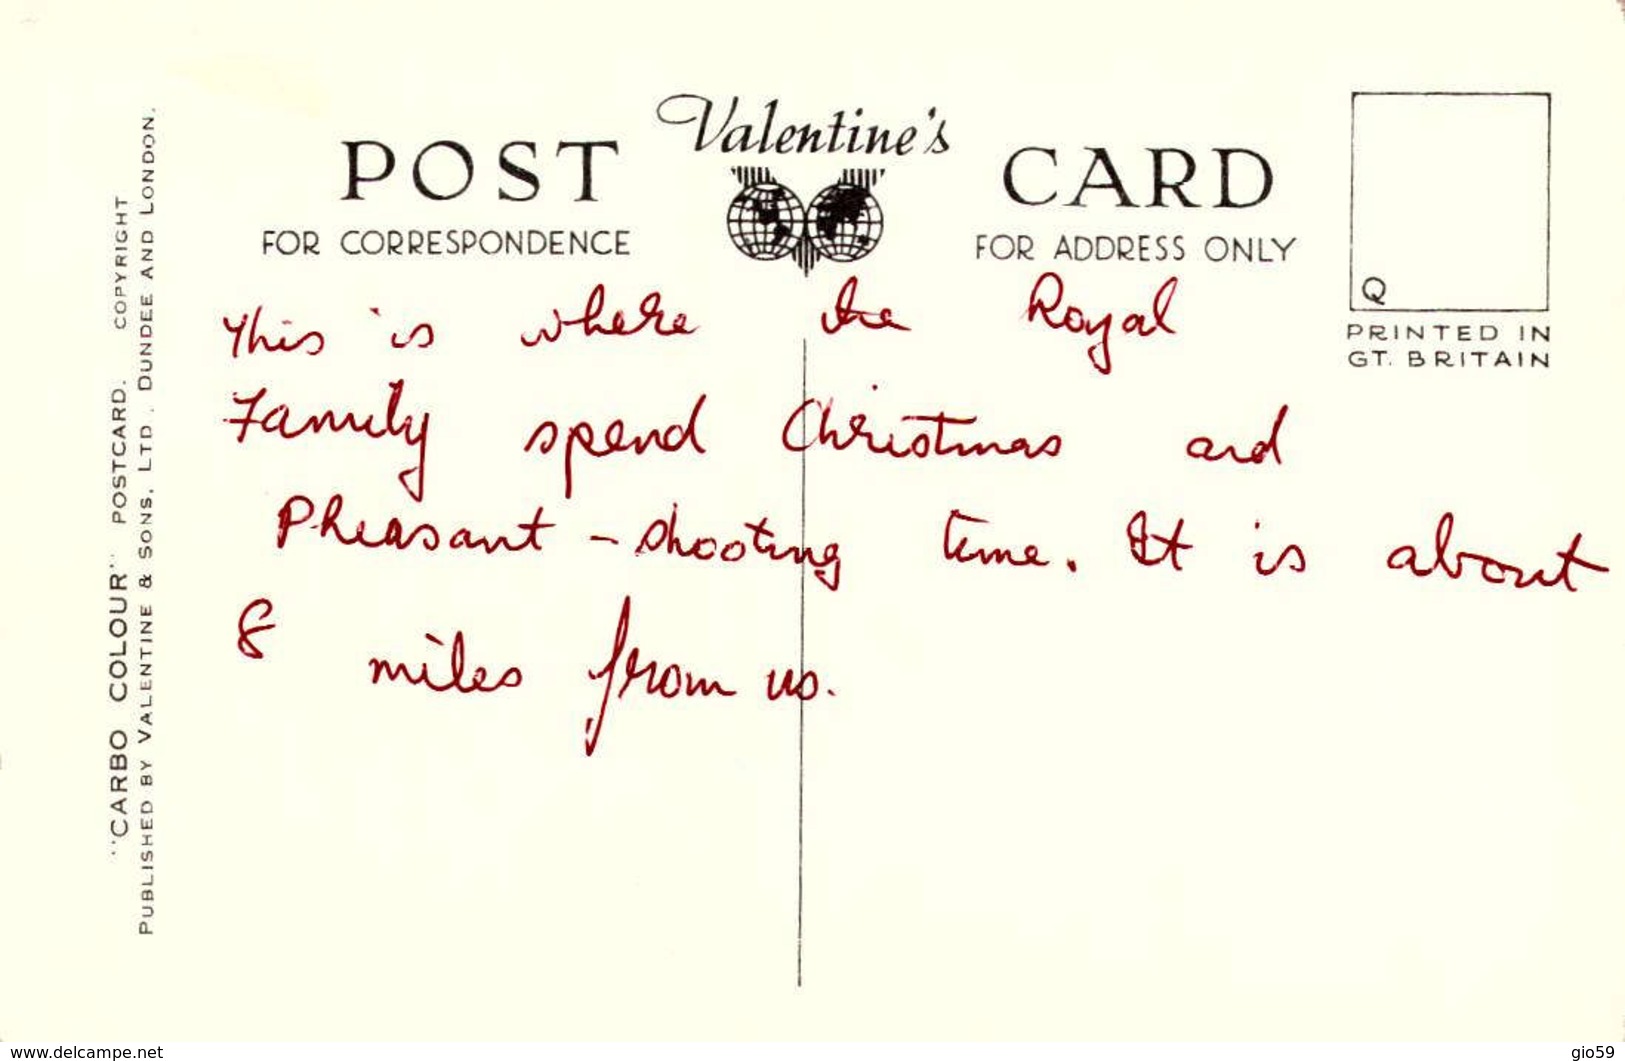 Valentine's
POST CARD
FOR CORRESPONDENCE
FOR ADDRESS ONLY
Q
PRINTED IN
GT. BRITAIN
"CARBO COLOUR" POSTCARD. COPYRIGHT
PUBLISHED BY VALENTINE & SONS, LTD. DUNDEE AND LONDON.
This is where the Royal
Family spend Christmas and
Pheasant - shooting time. It is about
8 miles from us.
www.delcampe.net
gio59